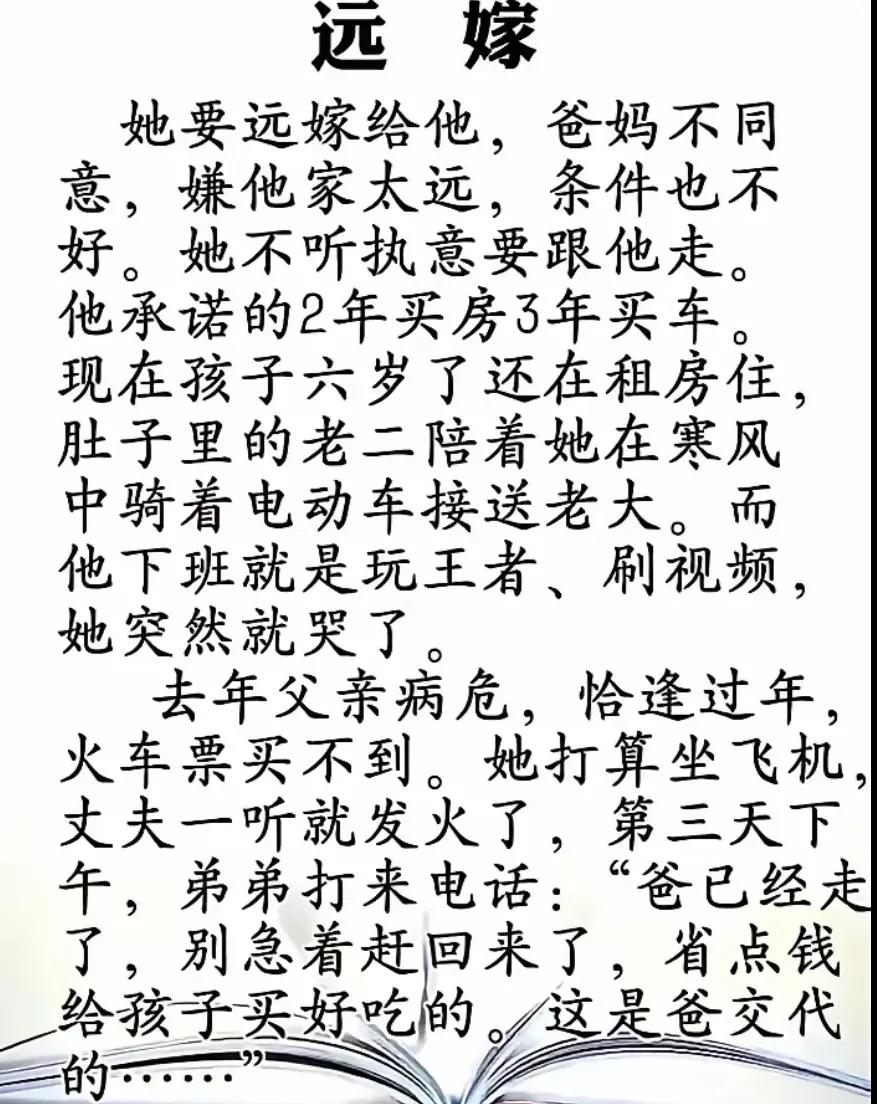 远 嫁
她要远嫁给他，爸妈不同
意，嫌他家太远，条件也不
好。她不听执意要跟他走。
他承诺的2年买房3年买车。
现在孩子六岁了还在租房住，
肚子里的老二陪着她在寒风
中骑着电动车接送老大。而
他下班就是玩王者、刷视频，
她突然就哭了。
去年父亲病危，恰逢过年，
火车票买不到。她打算坐飞机，
丈夫一听就发火了，第三天下
午，弟弟打来电话：“爸已经走
了，别急着赶回来了，省点钱
给孩子买好吃的。这是爸交代
的……”